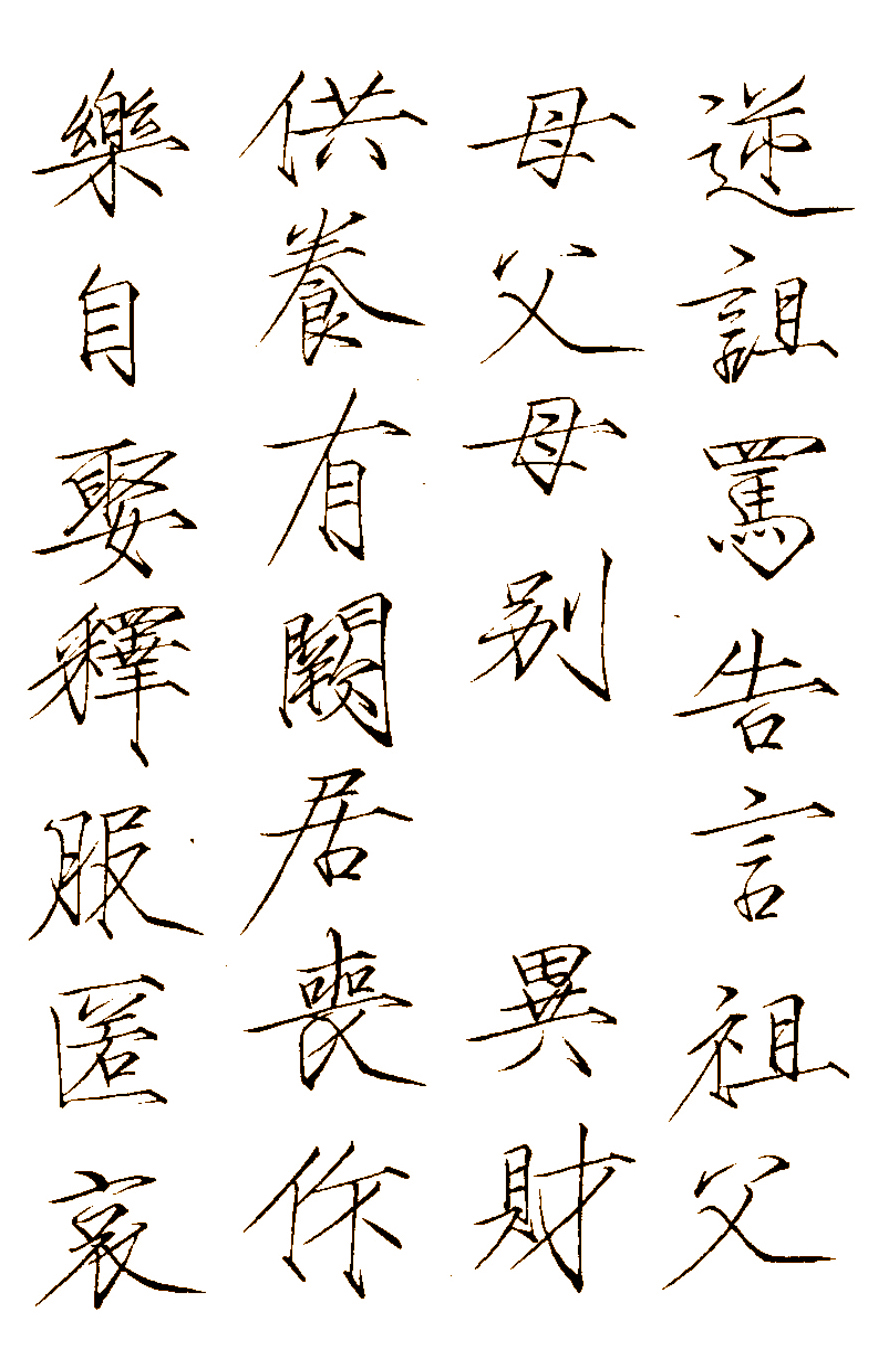 逆詛罵告言祖父
母父母别異財
供養有闕居喪作
樂自娶釋服匿哀